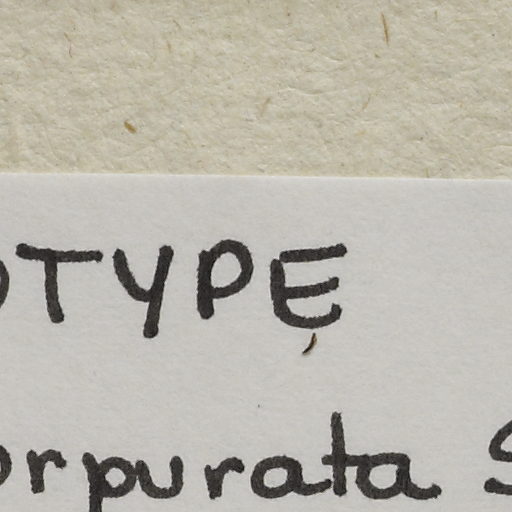 OTYPE
orpurata S